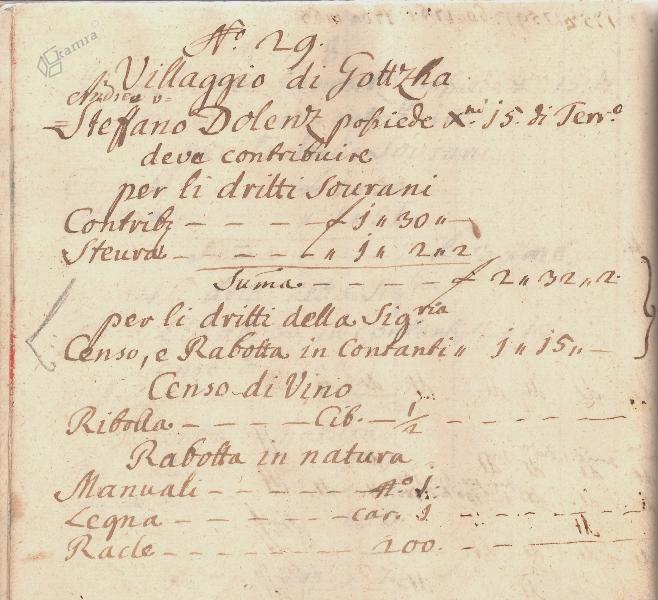 kamra
N.º 29.
Villaggio di Gottzha
Andrea v=
=Steffano Dolenz possiede Xni 15. di Terr.o
deve contribuire
per li dritti Sourani
Contribz - - - - f 1 „ 30 „ -
Steura - - - - „ 1 „ 2 „ 2
Suma - - - - - f 2 „ 32 „ 2
per li dritti della Sig.ria
Censo, e Rabotta in Contanti „ 1 „ 15 „ -
Censo di Vino
Ribolla - - - - - Cib. - 1/2 - - - - - -
Rabotta in natura
Manuali - - - - - Nº 1.
Legna - - - - - - car. 1 - - - - -
Racle - - - - - - 200. - - -